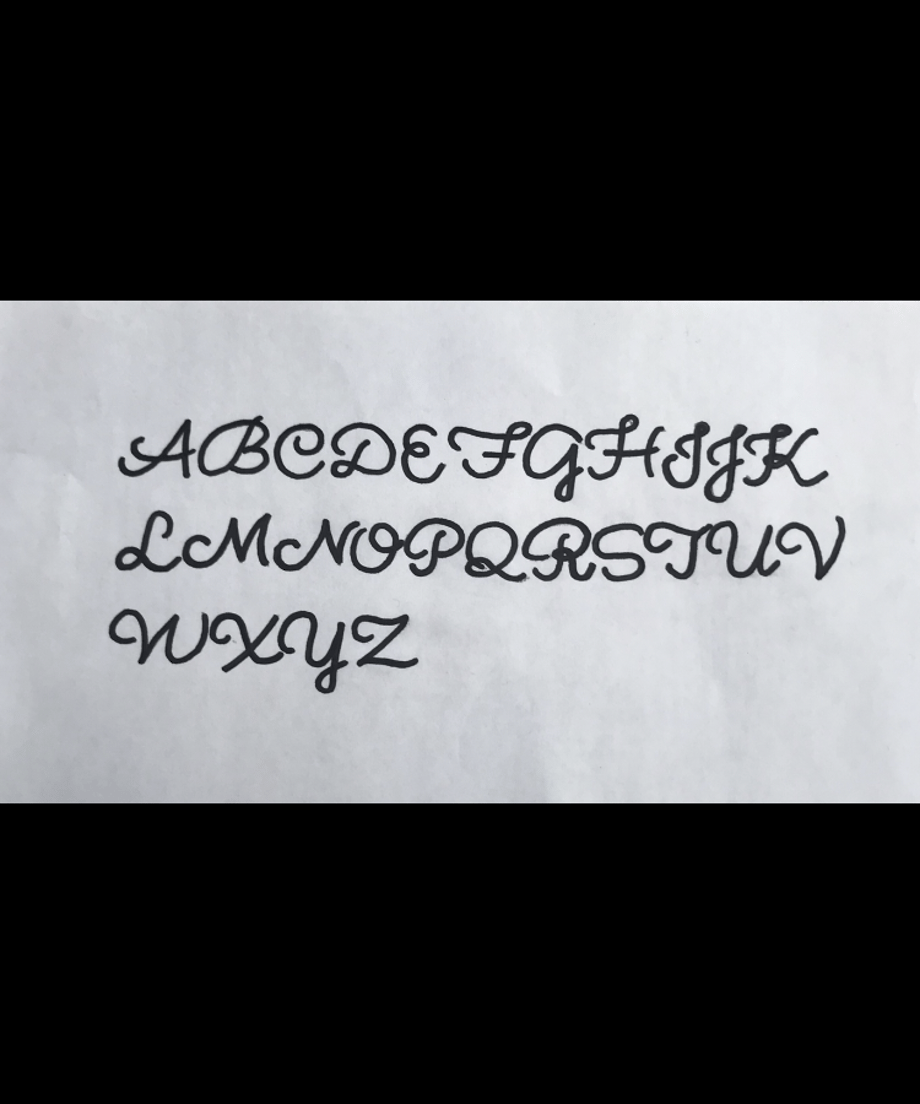 ABCDEFGHIJK
LMNOPQRSTUV
WXYZ